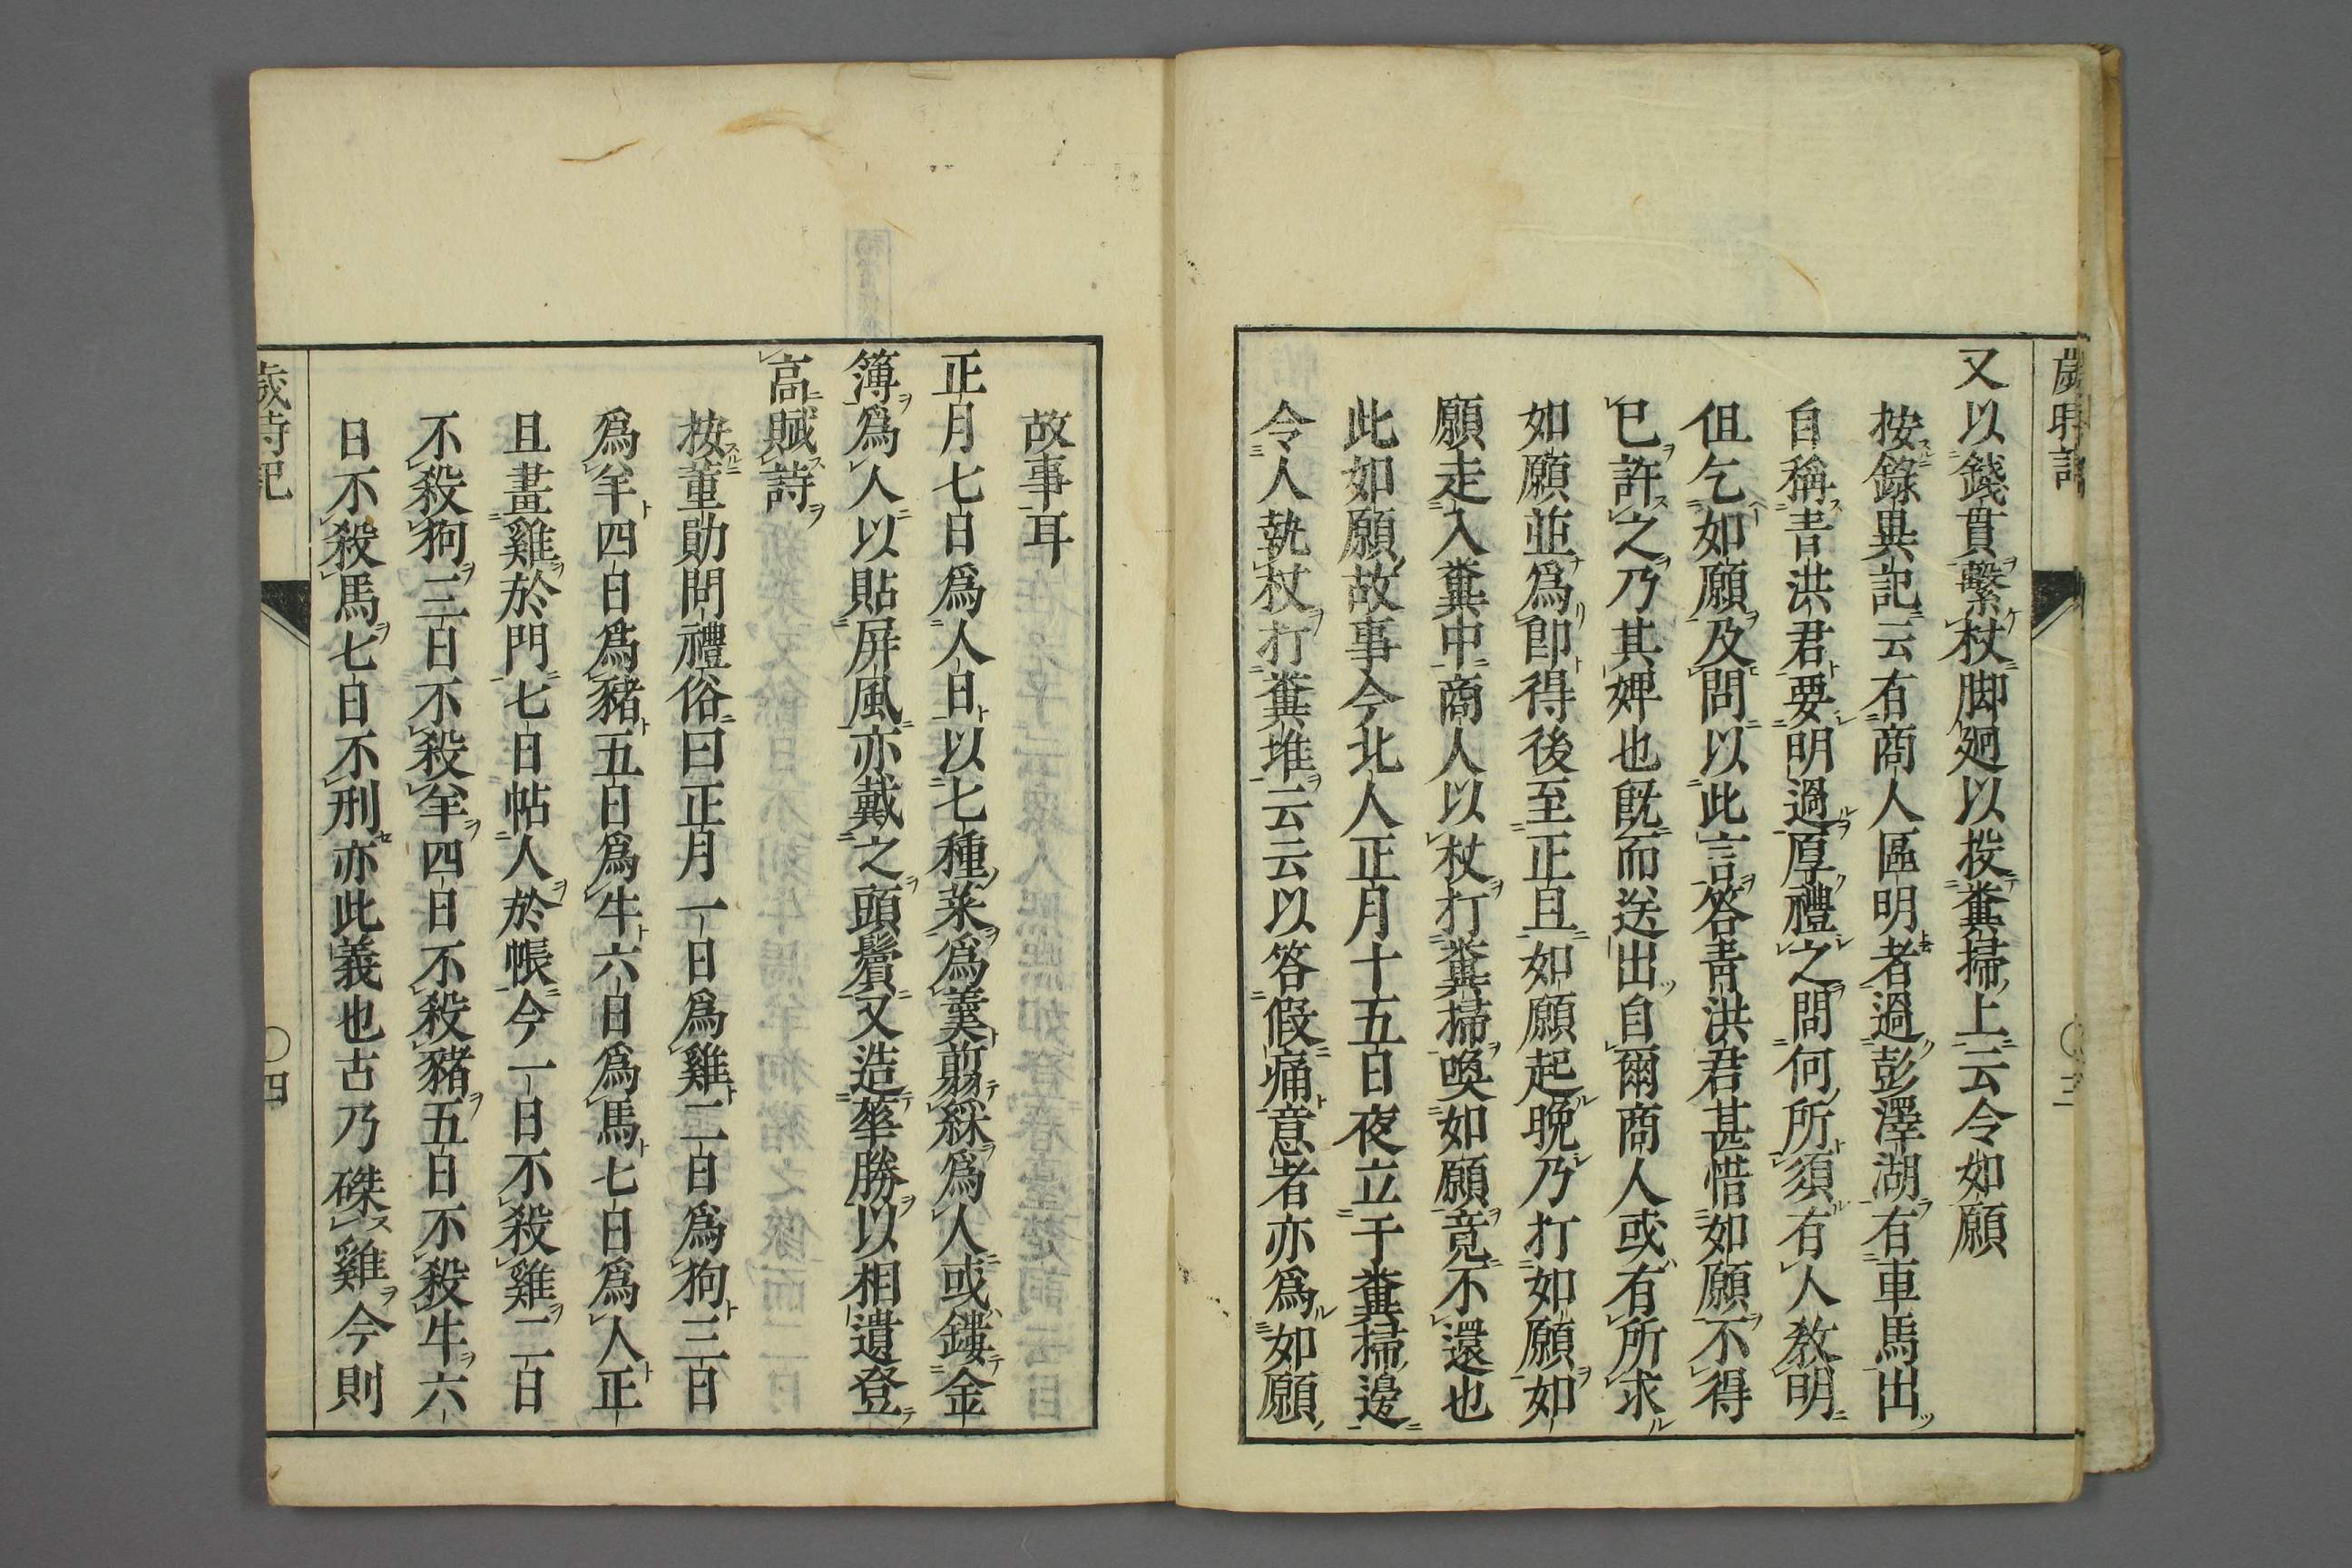 歲時記
三
又以錢貫繫杖脚廻以投糞掃上云令如願
按錄異記云有商人區明者過彭澤湖有車馬出
自稱青洪君要明過厚禮之問何所須有人教明
但乞如願及問以此言答青洪君甚惜如願不得
已許之乃其婢也既而送出自爾商人或有所求
如願並爲即得後至正旦如願起晩乃打如願如
願走入糞中商人以杖打糞掃喚如願竟不還也
此如願故事今北人正月十五日夜立于糞掃邊
令人執杖打糞堆云云以答假痛意者亦爲如願
故事耳
正月七日爲人日以七種菜爲羹翦綵爲人或鏤金
簿爲人以貼屏風亦戴之頭鬢又造華勝以相遺登
高賦詩
按董勛問禮俗曰正月一日爲雞二日爲狗三日
爲羊四日爲豬五日爲牛六日爲馬七日爲人正
旦畫雞於門七日帖人於帳今一日不殺雞二日
不殺狗三日不殺羊四日不殺豬五日不殺牛六
日不殺馬七日不刑亦此義也古乃磔雞今則
歲時記
四